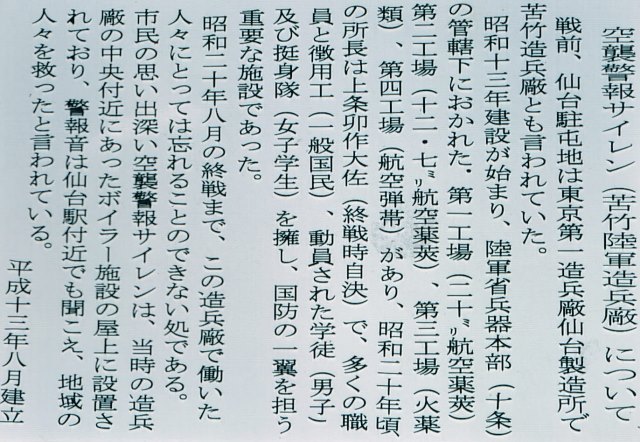 空襲警報サイレン(苦竹陸軍造兵廠)について
戦前、仙台駐屯地は東京第一造兵廠仙台製造所で
苦竹造兵廠とも言われていた。
昭和十三年建設が始まり、陸軍省兵器本部(十条)
の管轄下におかれた。第一工場(二十㍉航空薬莢)
第二工場(十二・七㍉航空薬莢)、第三工場(火薬
類)、第四工場(航空弾帯)があり、昭和二十年頃
の所長は上条卯作大佐(終戦時自決)で、多くの職
員と徴用工(一般国民)、動員された学徒(男子)
及び挺身隊(女子学生)を擁し、国防の一翼を担う
重要な施設であった。
昭和二十年八月の終戦まで、この造兵廠で働いた
人々にとっては忘れることのできない処である。
市民の思い出深い空襲警報サイレンは、当時の造兵
廠の中央付近にあったボイラー施設の屋上に設置さ
れており、警報音は仙台駅付近でも聞こえ、地域の
人々を救ったと言われている。
平成十三年八月建立